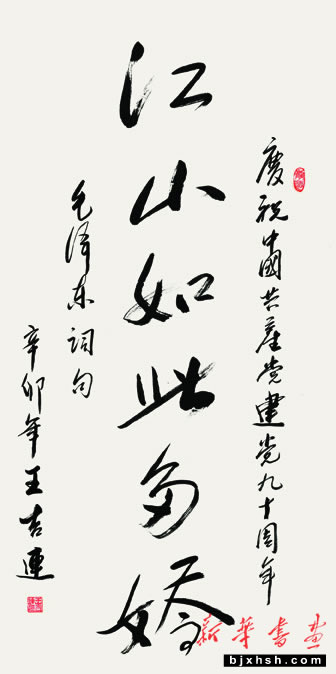 慶祝中國共產党建党九十周年
江山如此多娇
毛泽东词句
辛卯年王吉連
新華書畫
bjxhsh.com